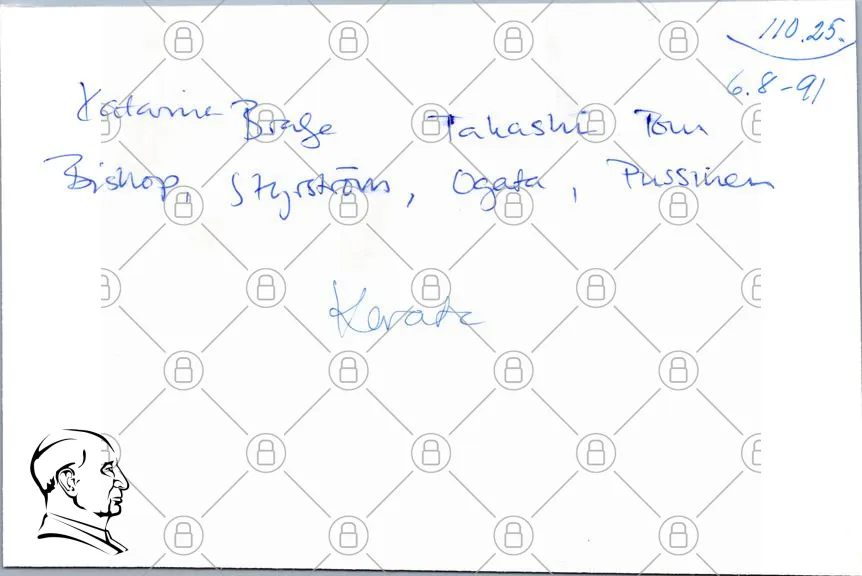 110.25.
6.8-91
Katarina Brage Takashi Tom
Bishop, Styrström, Ogata, Pussinen